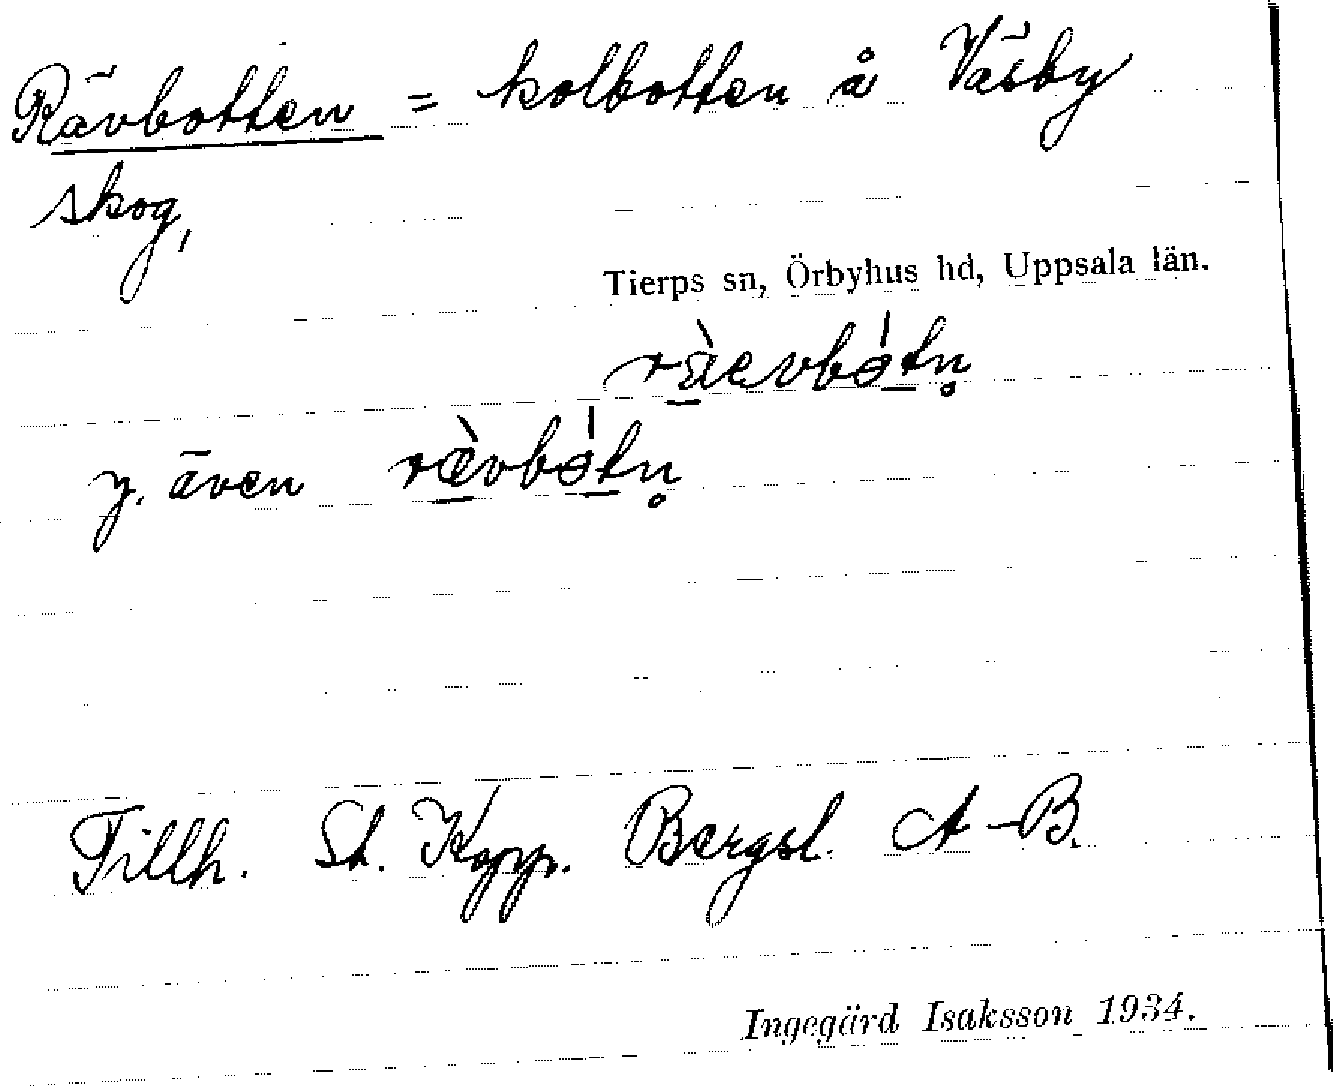 Rävbotten = kolbotten å Väsby
skog,
Tierps sn, Örbyhus hd, Uppsala län.
y. även
Tillh. St. Kopp. Bergsl. A-B.
Ingegärd Isaksson 1934.